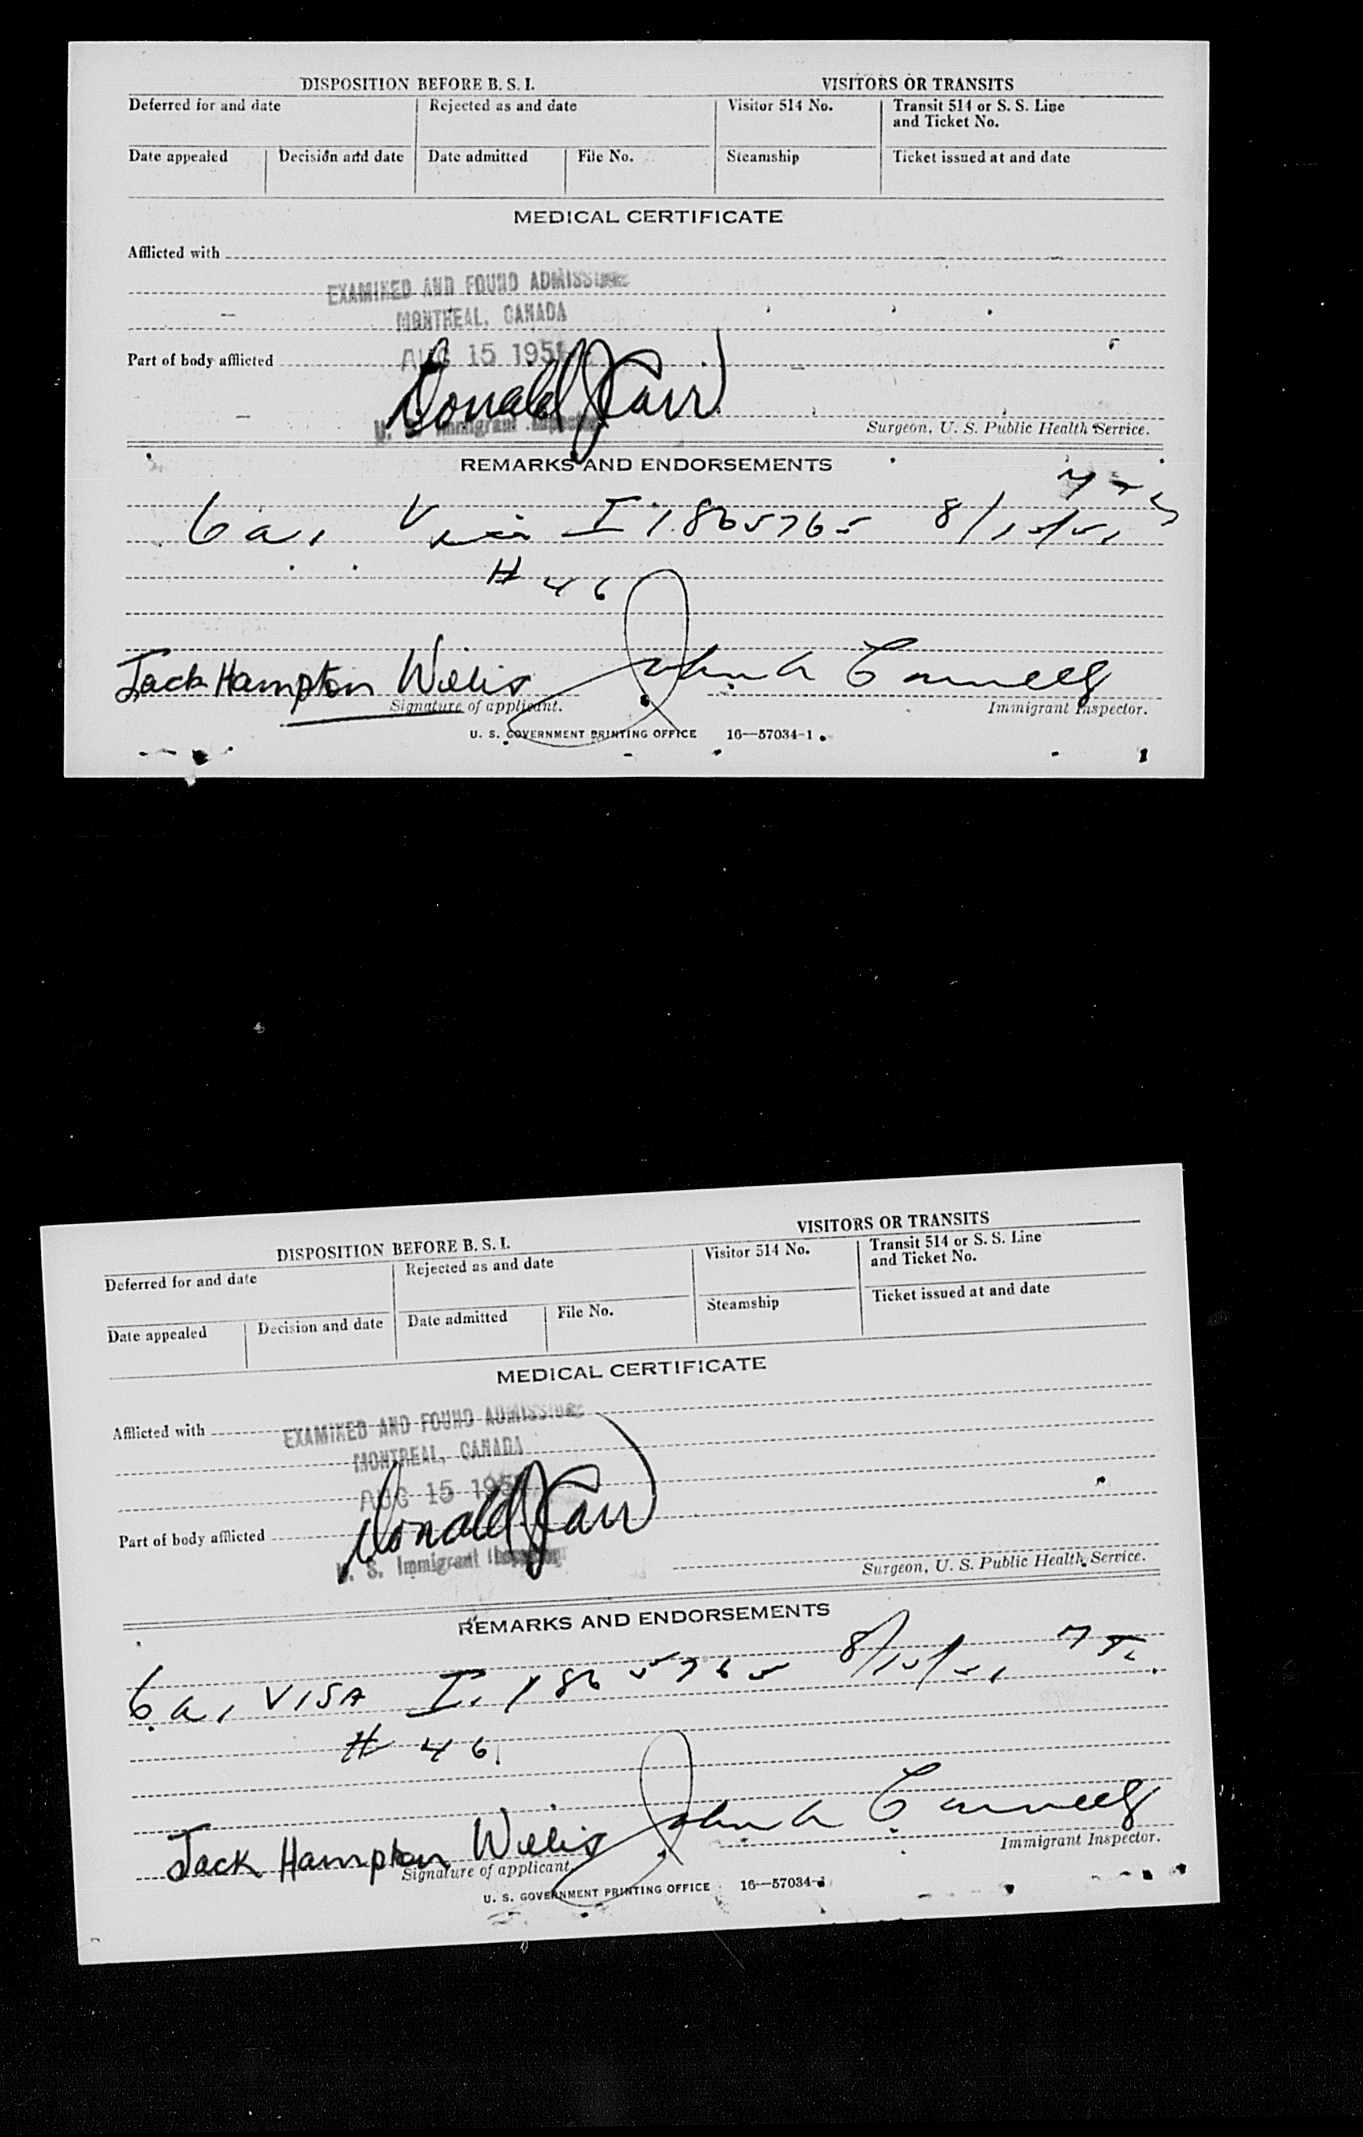 DISPOSITION BEFORE B. S. I. VISITORS OR TRANSITS
Deferred for and date Rejected as and date Visitor 514 No. Transit 514 or S. S. Line
and Ticket No.
Date appealed Decision and date Date admitted File No. Steamship Ticket issued at and date
MEDICAL CERTIFICATE
Afflicted with
EXAMINED AND FOUND ADMISSIBLE
MONTREAL, CANADA
Part of body afflicted AUG 15 1951
Donald J Carr
U. S. Immigrant Inspector
Surgeon, U. S. Public Health Service.
REMARKS AND ENDORSEMENTS
6a, Visa I, 1865765 8/15/51
# 46
Jack Hampton Willis John A Connelly
Signature of applicant. Immigrant Inspector.
U. S. GOVERNMENT PRINTING OFFICE 16—57034-1
DISPOSITION BEFORE B. S. I. VISITORS OR TRANSITS
Deferred for and date Rejected as and date Visitor 514 No. Transit 514 or S. S. Line
and Ticket No.
Date appealed Decision and date Date admitted File No. Steamship Ticket issued at and date
MEDICAL CERTIFICATE
Afflicted with
EXAMINED AND FOUND ADMISSIBLE
MONTREAL, CANADA
AUG 15 1951
Part of body afflicted Donald J Carr
U. S. Immigrant Inspector
Surgeon, U. S. Public Health Service.
REMARKS AND ENDORSEMENTS
6a, VISA I, 1865765 8/15/51
# 46
Jack Hampton Willis John A Connelly
Signature of applicant. Immigrant Inspector.
U. S. GOVERNMENT PRINTING OFFICE 16—57034-1